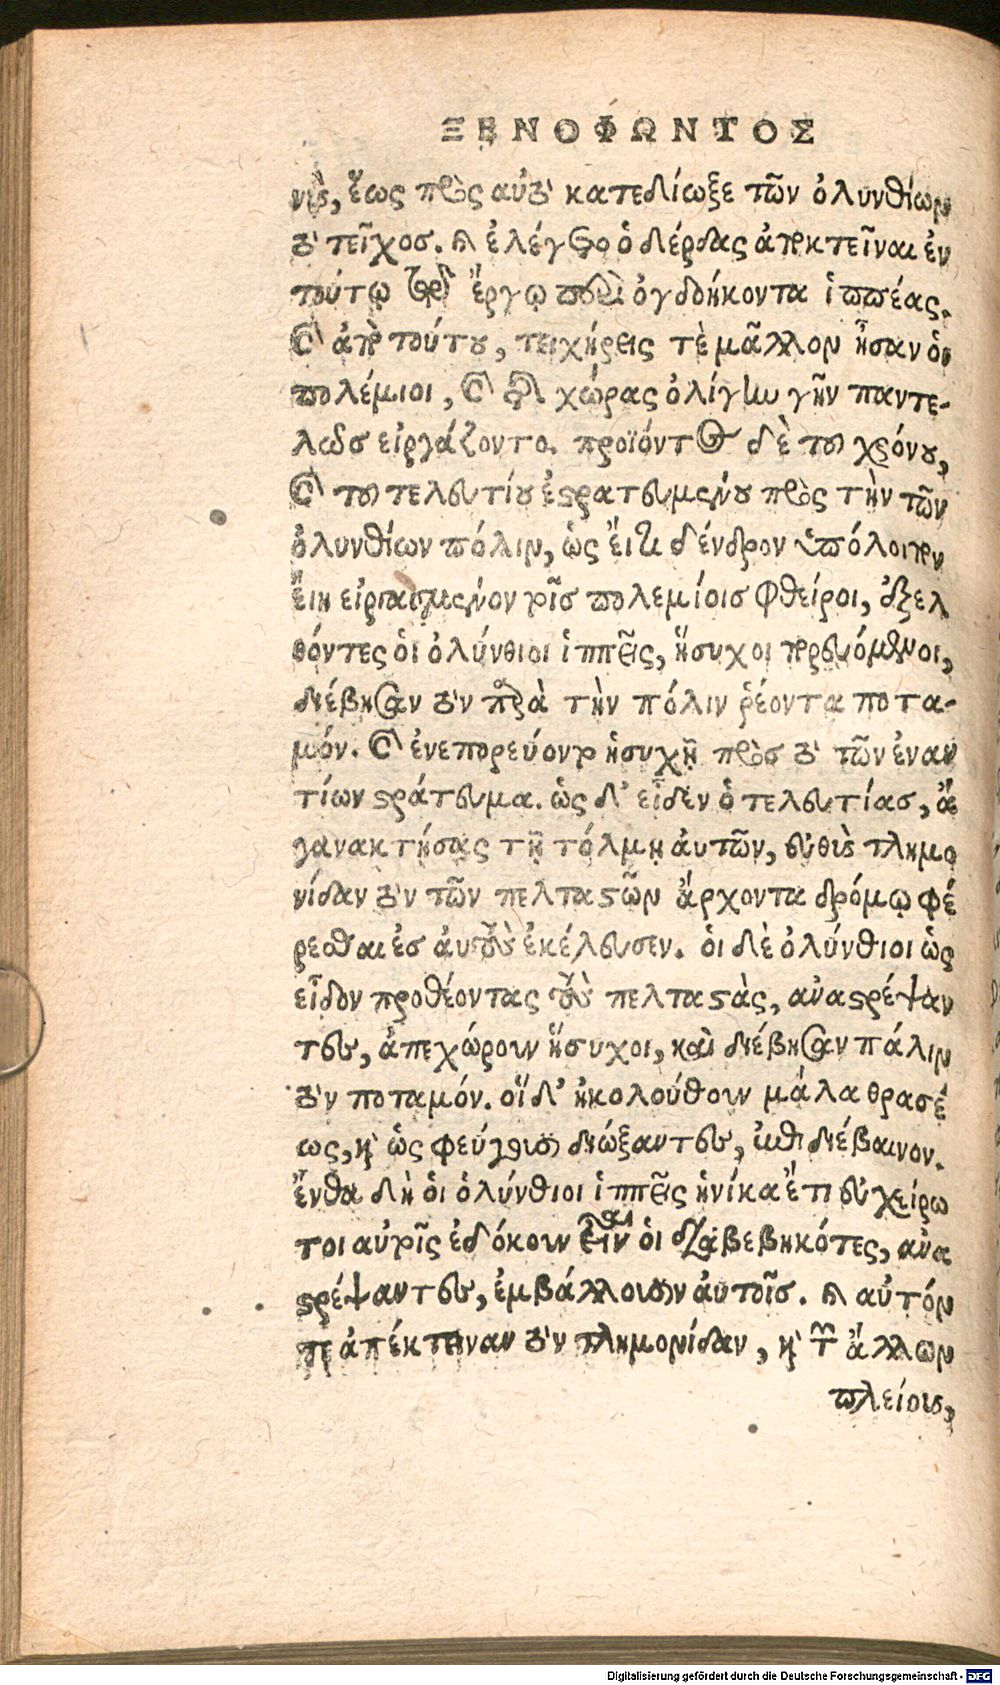 ΞΕΝΟΦΩΝΤΟΣ
νους, ἕως πρὸς αὐτὸ κατεδίωξε τῶν ὀλυνθίων
τὸ τεῖχος. καὶ ἐλέγετο ὁ δέρδας ἀποκτεῖναι ἐν
τούτῳ τῷ ἔργῳ περὶ ὀγδοήκοντα ἱππέας.
καὶ ἀπὸ τούτου, τειχήρεις τὲ μᾶλλον ἦσαν ὁι
πολέμιοι, καὶ τῆς χώρας ὀλίγην γῆν παντε-
λῶς εἰργάζοντο. προϊόντος δὲ τοῦ χρόνου,
καὶ τοῦ τελευτίου ἐστρατευμένου πρὸς τὴν τῶν
ὀλυνθίων πόλιν, ὡς ἔι τι δένδρον ὑπόλοιπον
ἔιη εἰργασμένον τοῖς πολεμίοις φθείροι, ἐξελ
θόντες ὁι ὀλύνθιοι ἱππεῖς, ἥσυχοι πορευόμενοι,
διέβησαν τὸν παρὰ τὴν πόλιν ῥέοντα ποτα-
μόν. καὶ ἐνεπορεύοντο ἡσυχῇ πρὸς τὸ τῶν ἐναν
τίων στράτευμα. ὡς δ' εἶδεν ὁ τελευτίας, ἀ
γανακτήσας τῇ τόλμῃ ἀυτῶν, εὐθὺς τλημο
νίδαν τὸν τῶν πελταστῶν ἄρχοντα δρόμῳ φέ
ρεσθαι ἐς ἀυτοὺς ἐκέλευσεν. ὁι δὲ ὀλύνθιοι ὡς
εἶδον προθέοντας τοὺς πελταστὰς, ἀναστρέψαν
τες, ἀπεχώρουν ἥσυχοι, καὶ διέβησαν πάλιν
τὸν ποταμόν. οἵ δ' ἠκολούθουν μάλα θρασέ
ως, καὶ ὡς φεύγουσι διώξαντες, ἐπιδιέβαινον.
ἔνθα δὴ ὁι ὀλύνθιοι ἱππεῖς ἡνίκα ἔτι εὐχείρω
τοι αὐτοῖς ἐδόκουν εἶναι ὁι διαβεβηκότες, ἀνα
στρέψαντες, ἐμβάλλουσιν ἀυτοῖς. καὶ αὐτόν
τε ἀπέκτειναν τὸν τλημονίδαν, καὶ τῶν ἄλλων
πλείους,
Digitalisierung gefördert durch die Deutsche Forschungsgemeinschaft - DFG